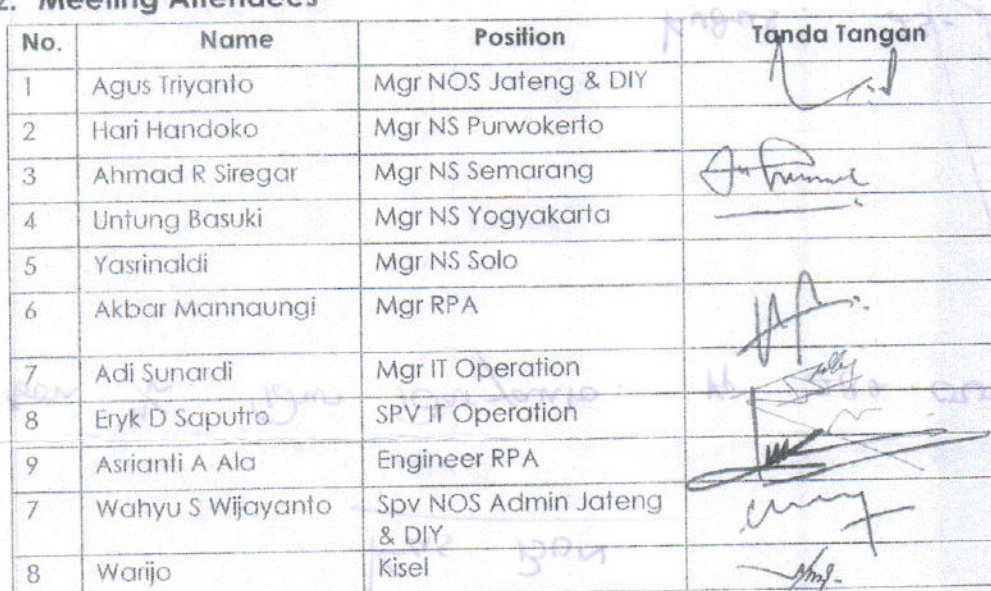 2. Meeting Attendees
No. Name Position Tanda Tangan
1 Agus Triyanto Mgr NOS Jateng & DIY
2 Hari Handoko Mgr NS Purwokerto
3 Ahmad R Siregar Mgr NS Semarang
4 Untung Basuki Mgr NS Yogyakarta
5 Yasrinaldi Mgr NS Solo
6 Akbar Mannaungi Mgr RPA
7 Adi Sunardi Mgr IT Operation
8 Eryk D Saputro SPV IT Operation
9 Asrianti A Ala Engineer RPA
7 Wahyu S Wijayanto Spv NOS Admin Jateng
& DIY
8 Warijo Kisel